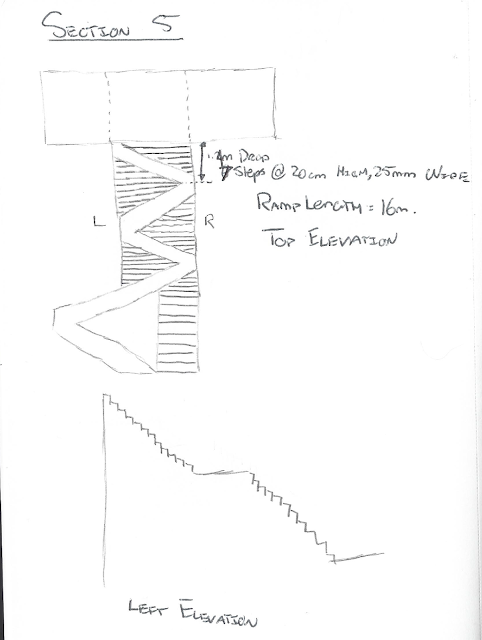 SECTION 5
m DROP
Steps @ 20cm HIGH, 25mm WIDE
RAMP LENGTH = 16m.
L
R
TOP ELEVATION
LEFT ELEVATION